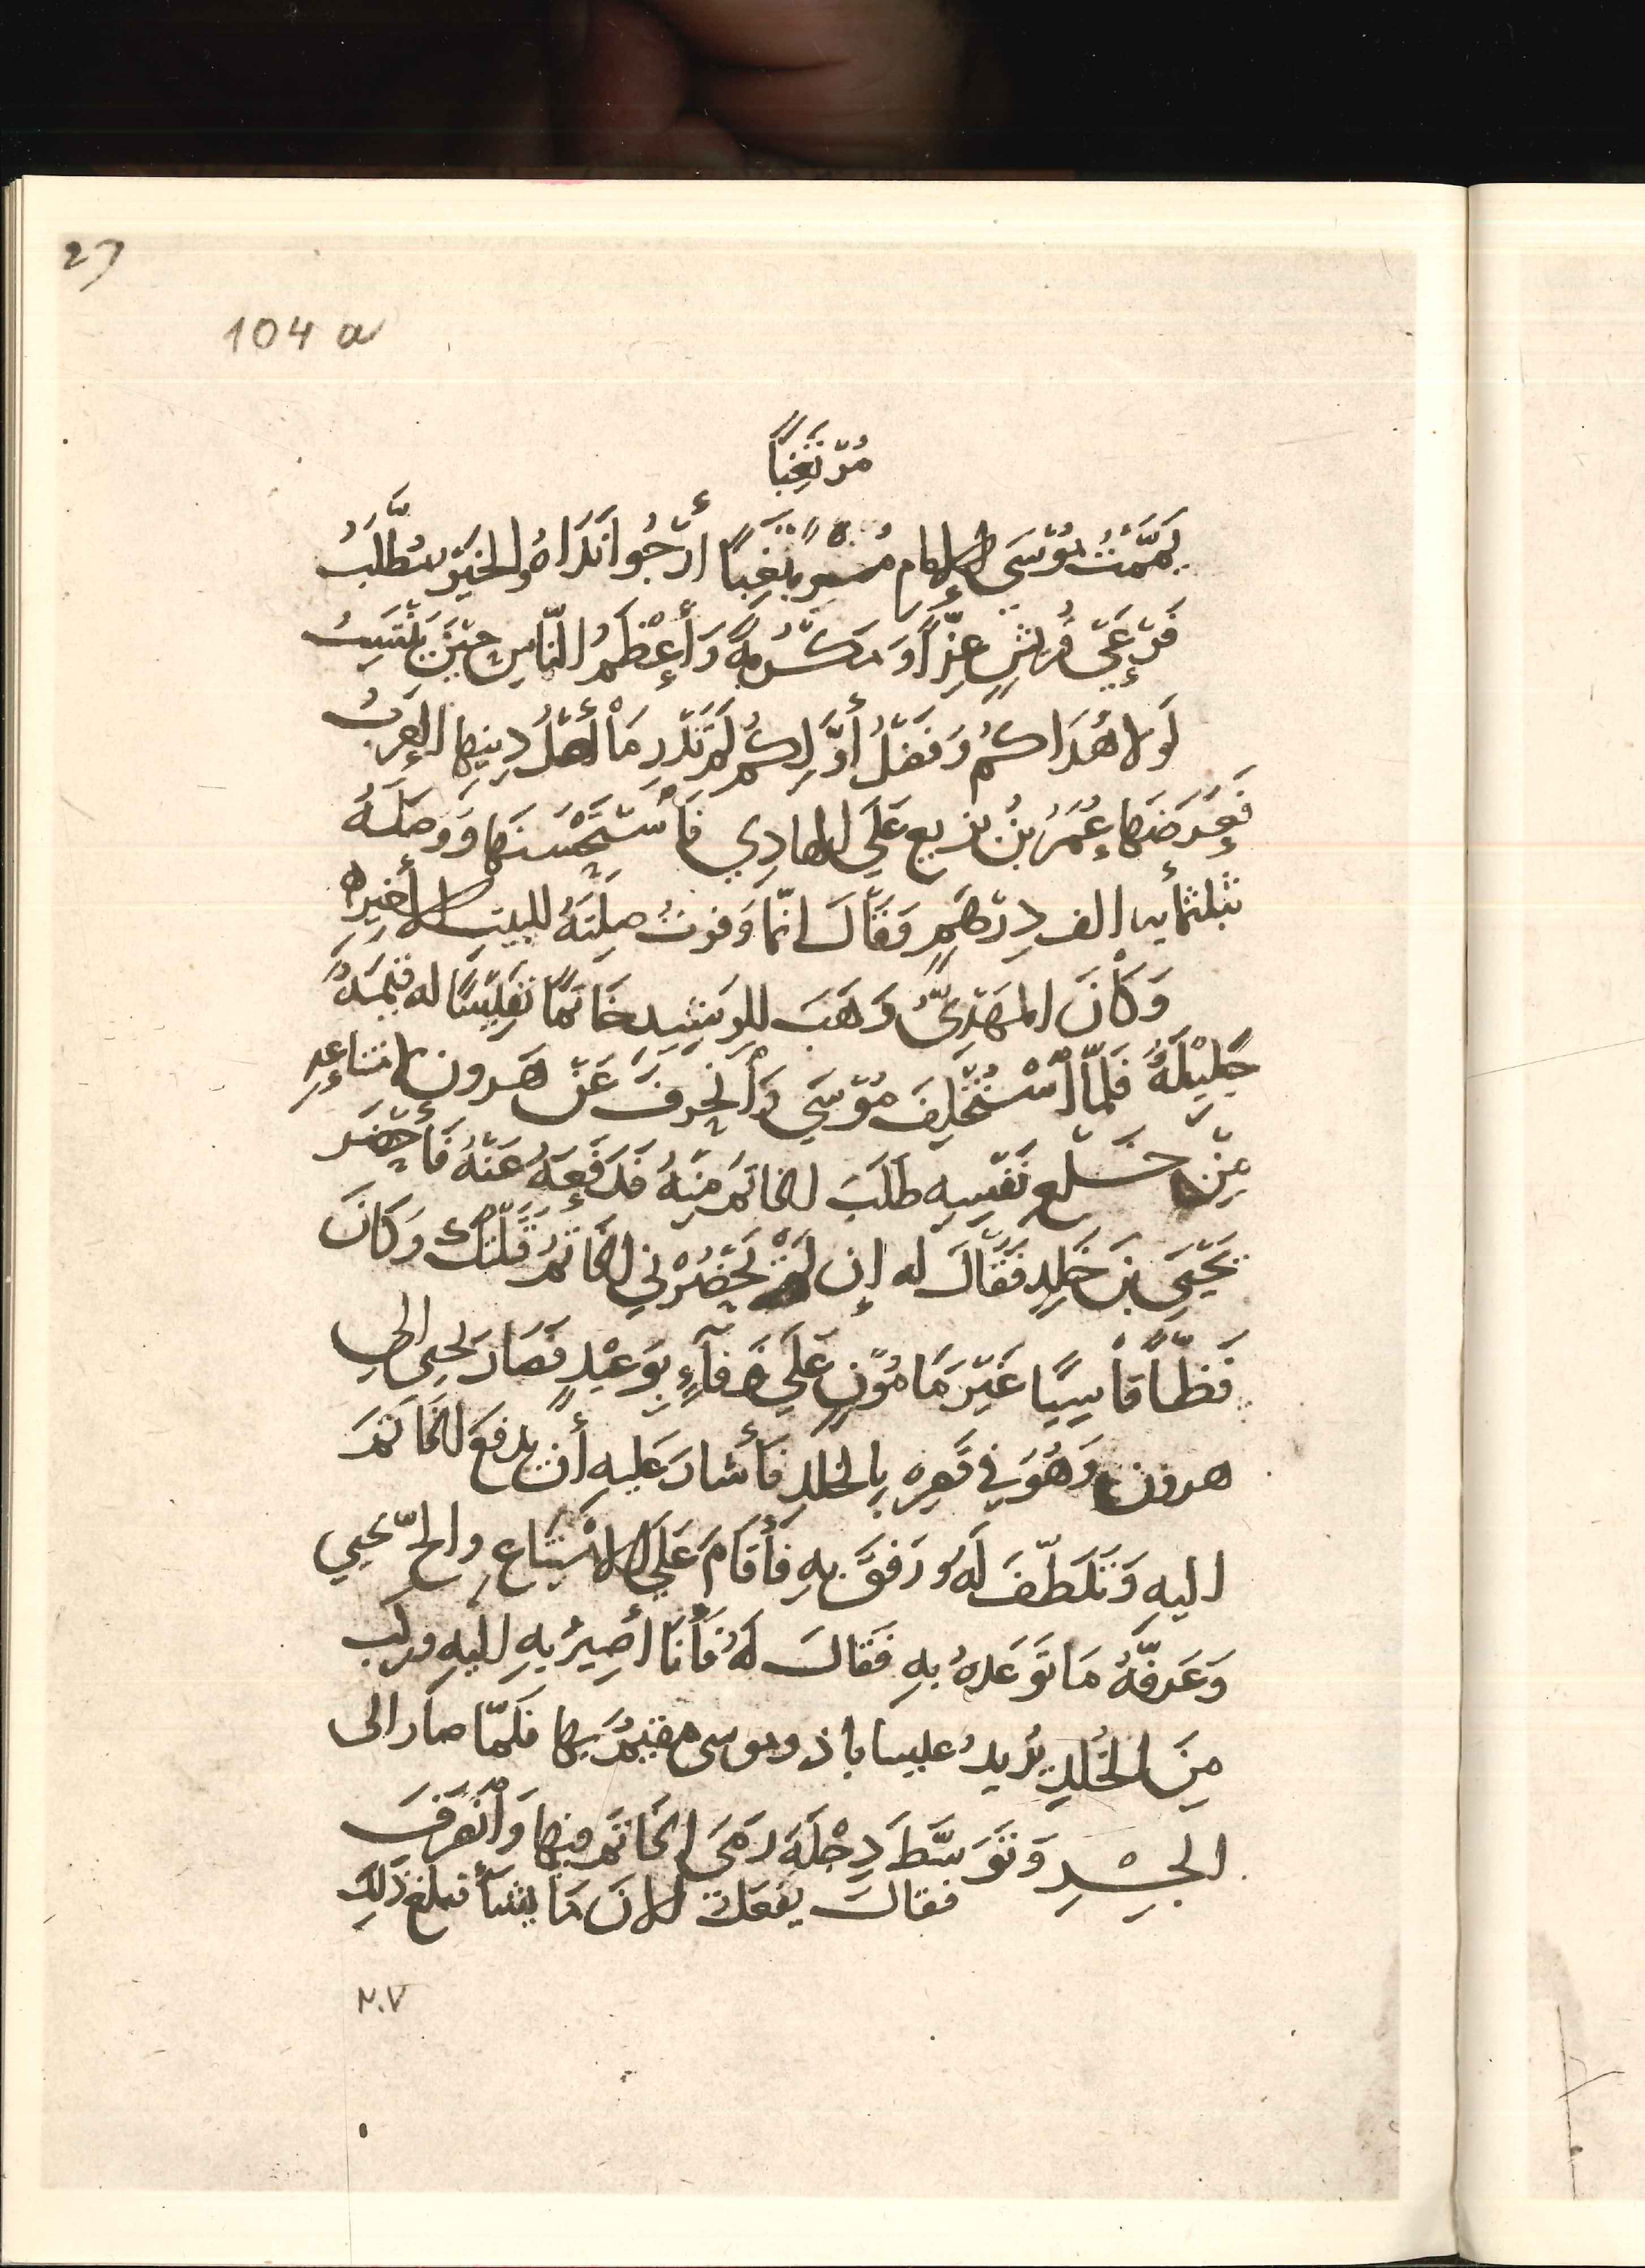 27
104 a
مُرْتَغِبًا
يَمَّمْتُ مُوْسَى الإمام مُرْتَغِبًا أَرْجُوا نَدَاهُ والخَيْرَ يطَّلَبُ
فَرْعَيْ قُرَيْشٍ عِزًّا وَمَكْرُمَةً وَأَعْظَمُ النَّاسِ حِيْنَ يَنْتَسِبُ
لَولا هُدَاكُم وَفَضْلُ أَوَّلِكُمْ لَم تَدْرِ مَا أَصْلُ دِينِهَا العَرَبُ
فَعَرَضَهَا عُمَرُ بنُ بزيع عَلَى الهادِي فَاسْتَحْسَنَهَا وَوَصَلَهُ
بثلثمأيه الف دِرْهَمٍ وَقَالَ انّمَا وَفرتُ صِلَتَهُ للبيتِ الأخيرِ
وَكَانَ المَهْدِيُّ وَهَبَ للرشِيدِ خَاتمًا نَفِيْسًا له قِيْمَةٌ
جَلِيْلَةٌ فَلَمّا اسْتُخْلِفَ مُوْسَي وَانْحَرفَ عَنْ هَرون لامتناعهِ
مِنْ خَلعِ نَفْسِهِ طَلَبَ الخاتمَ مِنْهُ فَدَفَعَهُ عَنْهُ فَأَحْضَرَ
يَحْيَي بنَ خَلِدٍ فَقَالَ له إن لَمْ تُحْضِرْنِي الخَاتمَ قَتَلْتُكَ وَكَانَ
فَظًّا قَاسِيًا غَيْرَ مَأمُوْنٍ عَلَي وَفَآءٍ بِوَعِيْدٍ فَصَارَ يحيى الى
هرون وَهُوَ في قَصرِه بِالخلدِ فَأَشَارَ عَلَيهِ أَن يدفَعَ الخَاتَمَ
اليهِ وَتَلَطّفَ لَهُ وَرَفقَ بهِ فَأَقَامَ عَلَي الامْتِنَاعِ والحّ يحيي
وَعَرفّهُ مَا تَوَعَدهُ بهِ فَقَالَ لَهُ فَأَنَا أَصِيرُ بهِ اليهِ وركب
مِنَ الخُلدِ يُريدُ عيساباذ وموسى مقيمٌ بِهَا فَلَمّا صار الى
الجِسْرِ وَتَوَسَّطَ دِجْلَةَ رَمَى بالخَاتم فيهَا وَانْصَرفَ
فقالَ يفعَلُ الآنَ مَا يشأ فبلغ ذَلِكَ
٢٠٧